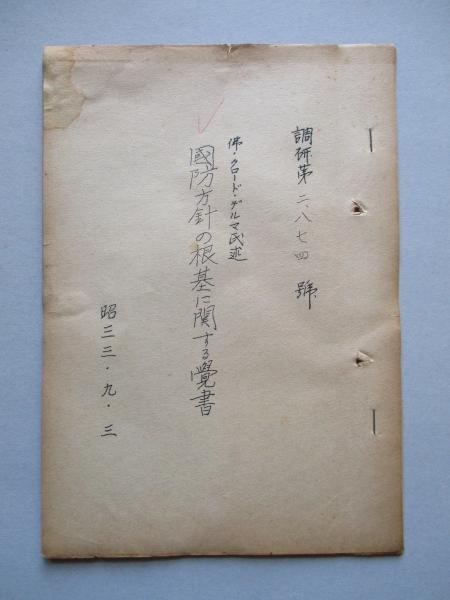 調研第二.八七四號
佛・クロード・デルマ氏述
國防方針の根基に関する覺書
昭三三・九・三